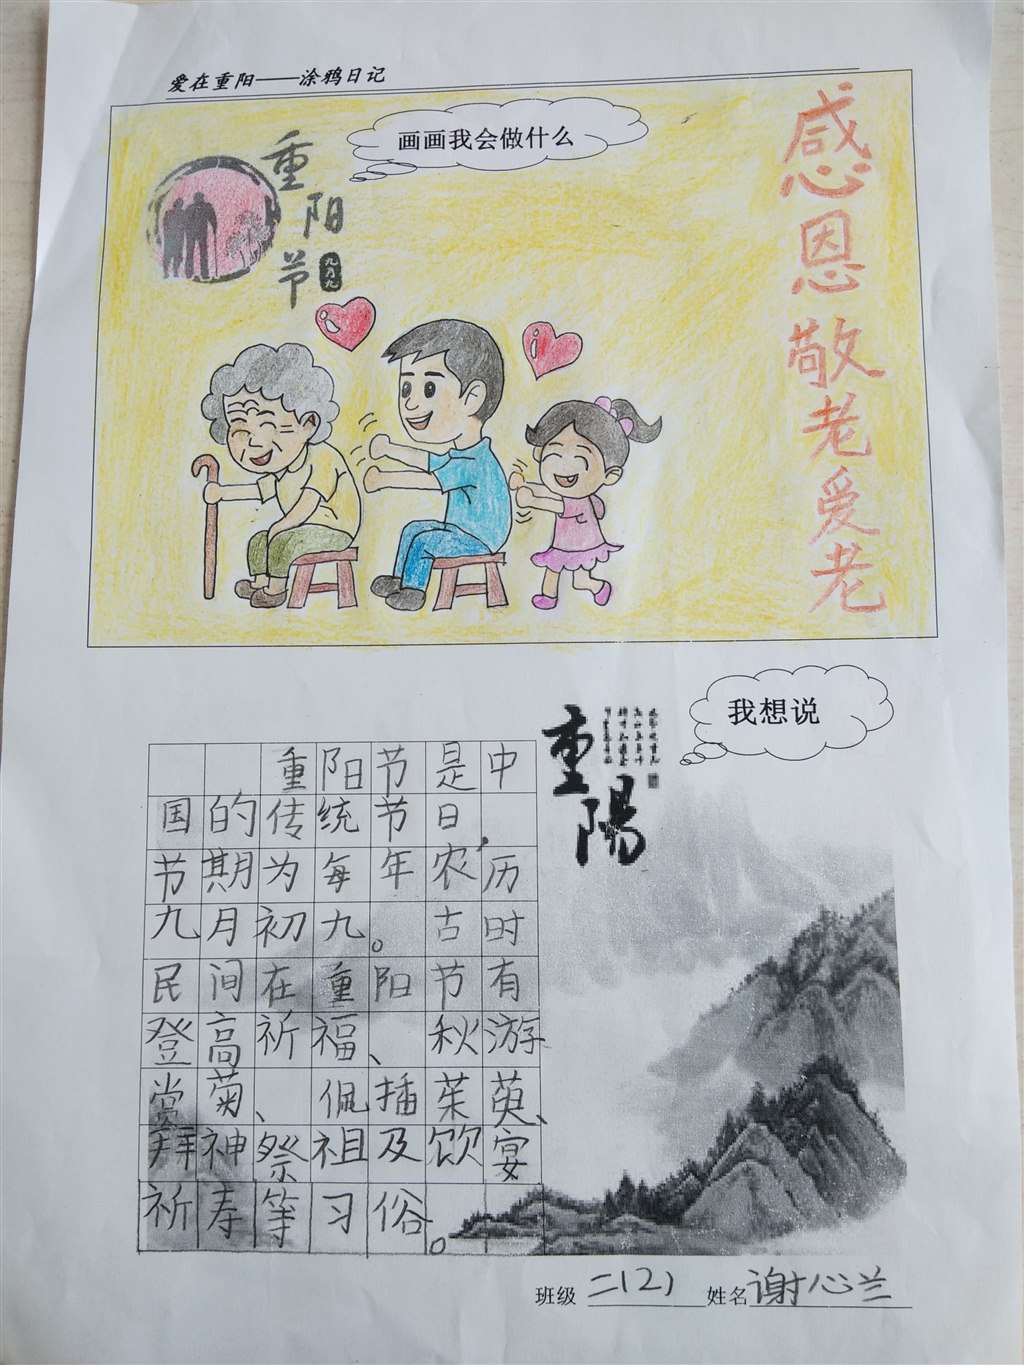 爱在重阳——涂鸦日记
画画我会做什么
重阳节
九月九
感恩敬老爱老
我想说
重陽
重阳节是中
国的传统节日，
节期为每年农历
九月初九。古时
民间在重阳节有
登高祈福、秋游
赏菊、佩插茱萸、
拜神祭祖及饮宴
祈寿等习俗。
班级 二(2) 姓名 谢心兰